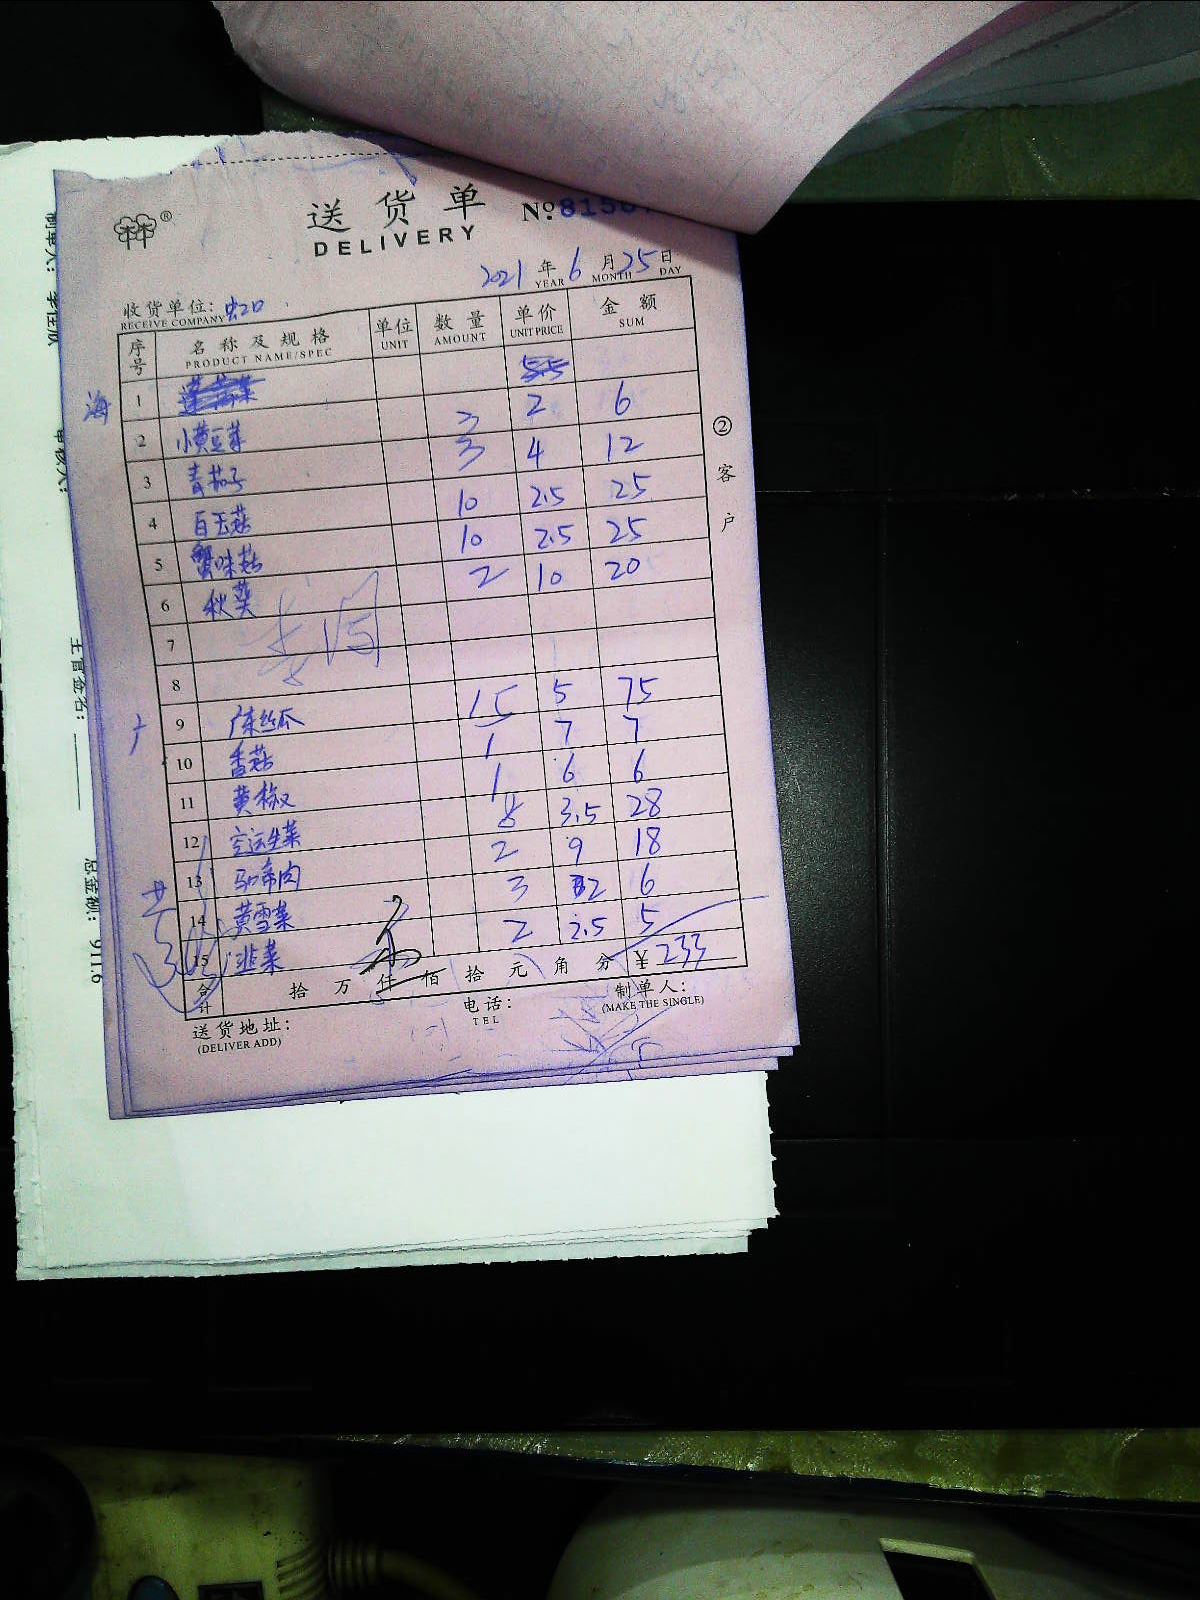 送货单 No.8150
DELIVERY
2021年6月25日
YEAR MONTH DAY
收货单位：虹口
RECEIVE COMPANY
序号 名称及规格 单位 数量 单价 金额
PRODUCT NAME/SPEC UNIT AMOUNT UNIT PRICE SUM
1 5.5
海
2 小黄豆芽 3 2 6
3 青茄子 3 4 12
4 白玉菇 10 2.5 25
5 蟹味菇 10 2.5 25
6 秋葵 2 10 20
7
8
广
9 广东丝瓜 15 5 75
10 香菇 1 7 7
11 黄椒 1 6 6
12 空运生菜 8 3.5 28
13 马蹄肉 2 9 18
14 黄雪菜 3 2 6
15 韭菜 2 2.5 5
合计 拾万仟佰拾元角分 ¥233
送货地址： 电话： 制单人：
(DELIVER ADD) TEL (MAKE THE SINGLE)
②客户
制单人：
审核人：
主管签名：
总金额： 911.6